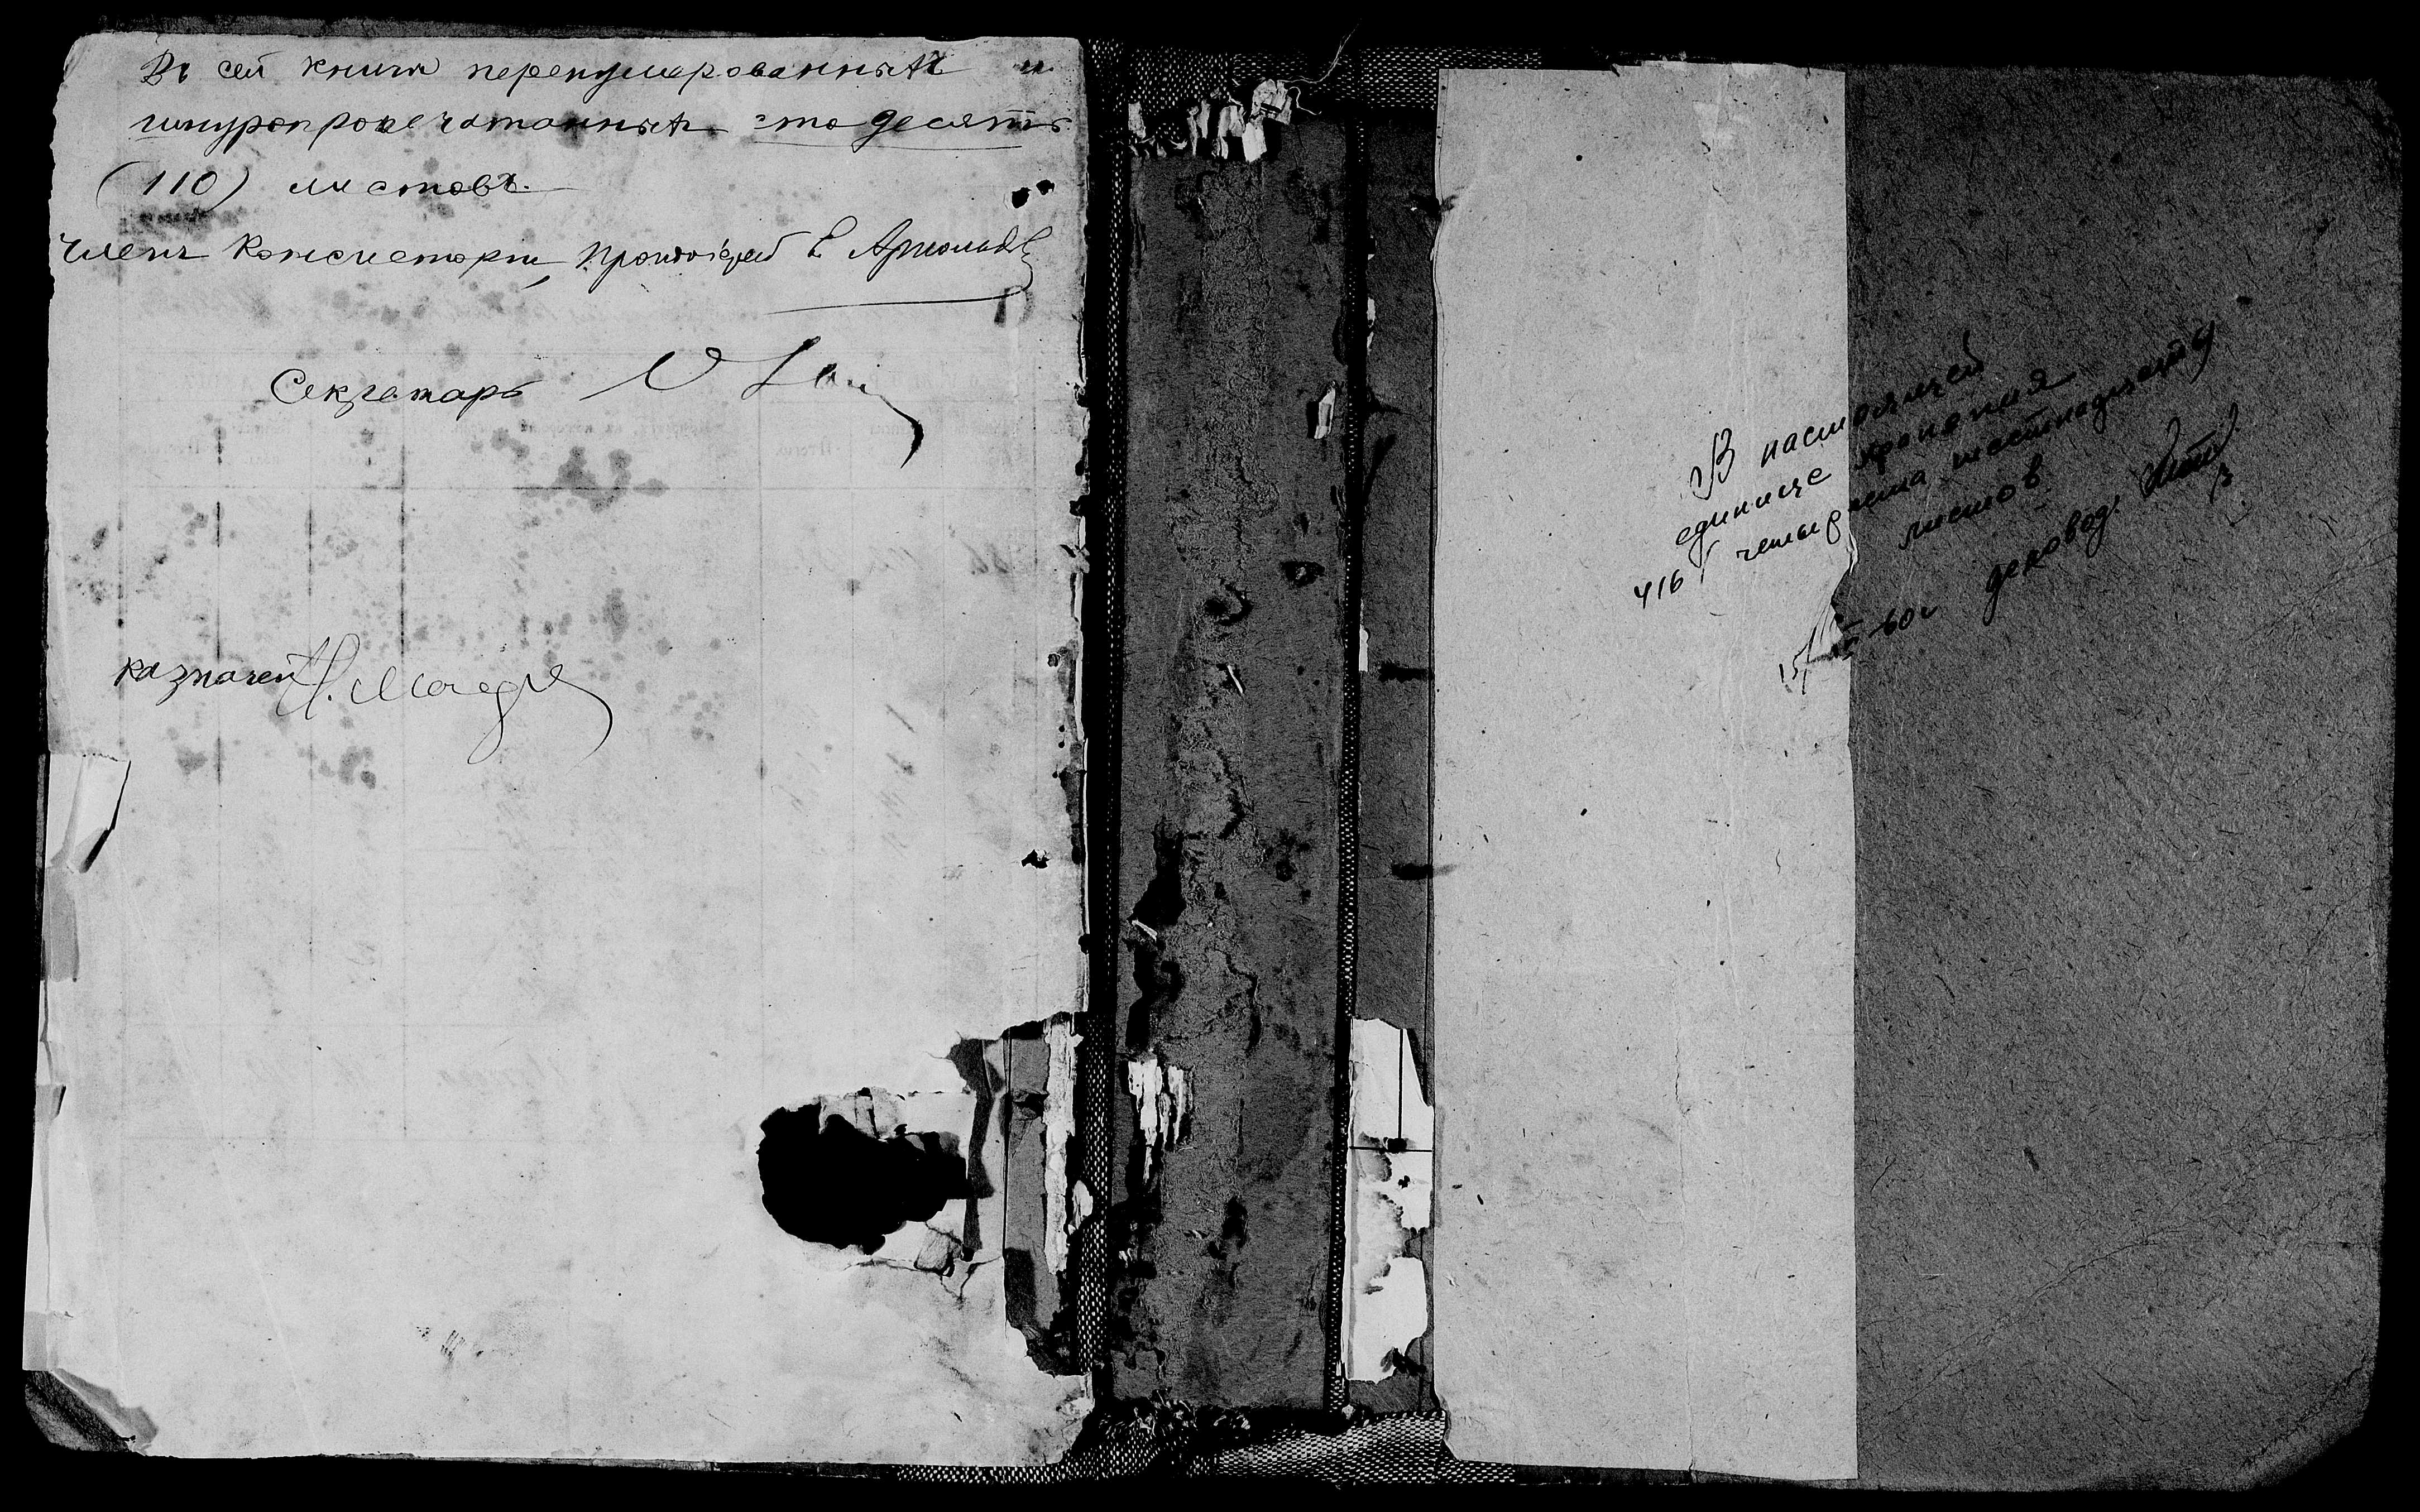 Въ сей книгѣ перенумерованныхъ и
шнуропропечатанныхъ сто десять
(110) листовъ.
Членъ Консисторіи, Протоіерей Е. Арнольдовъ
Секретарь
Казначей Н.
В настоящей
единице хранения
416 / четыреста шестнадцать /
листов
15/ X 60 г деловод.